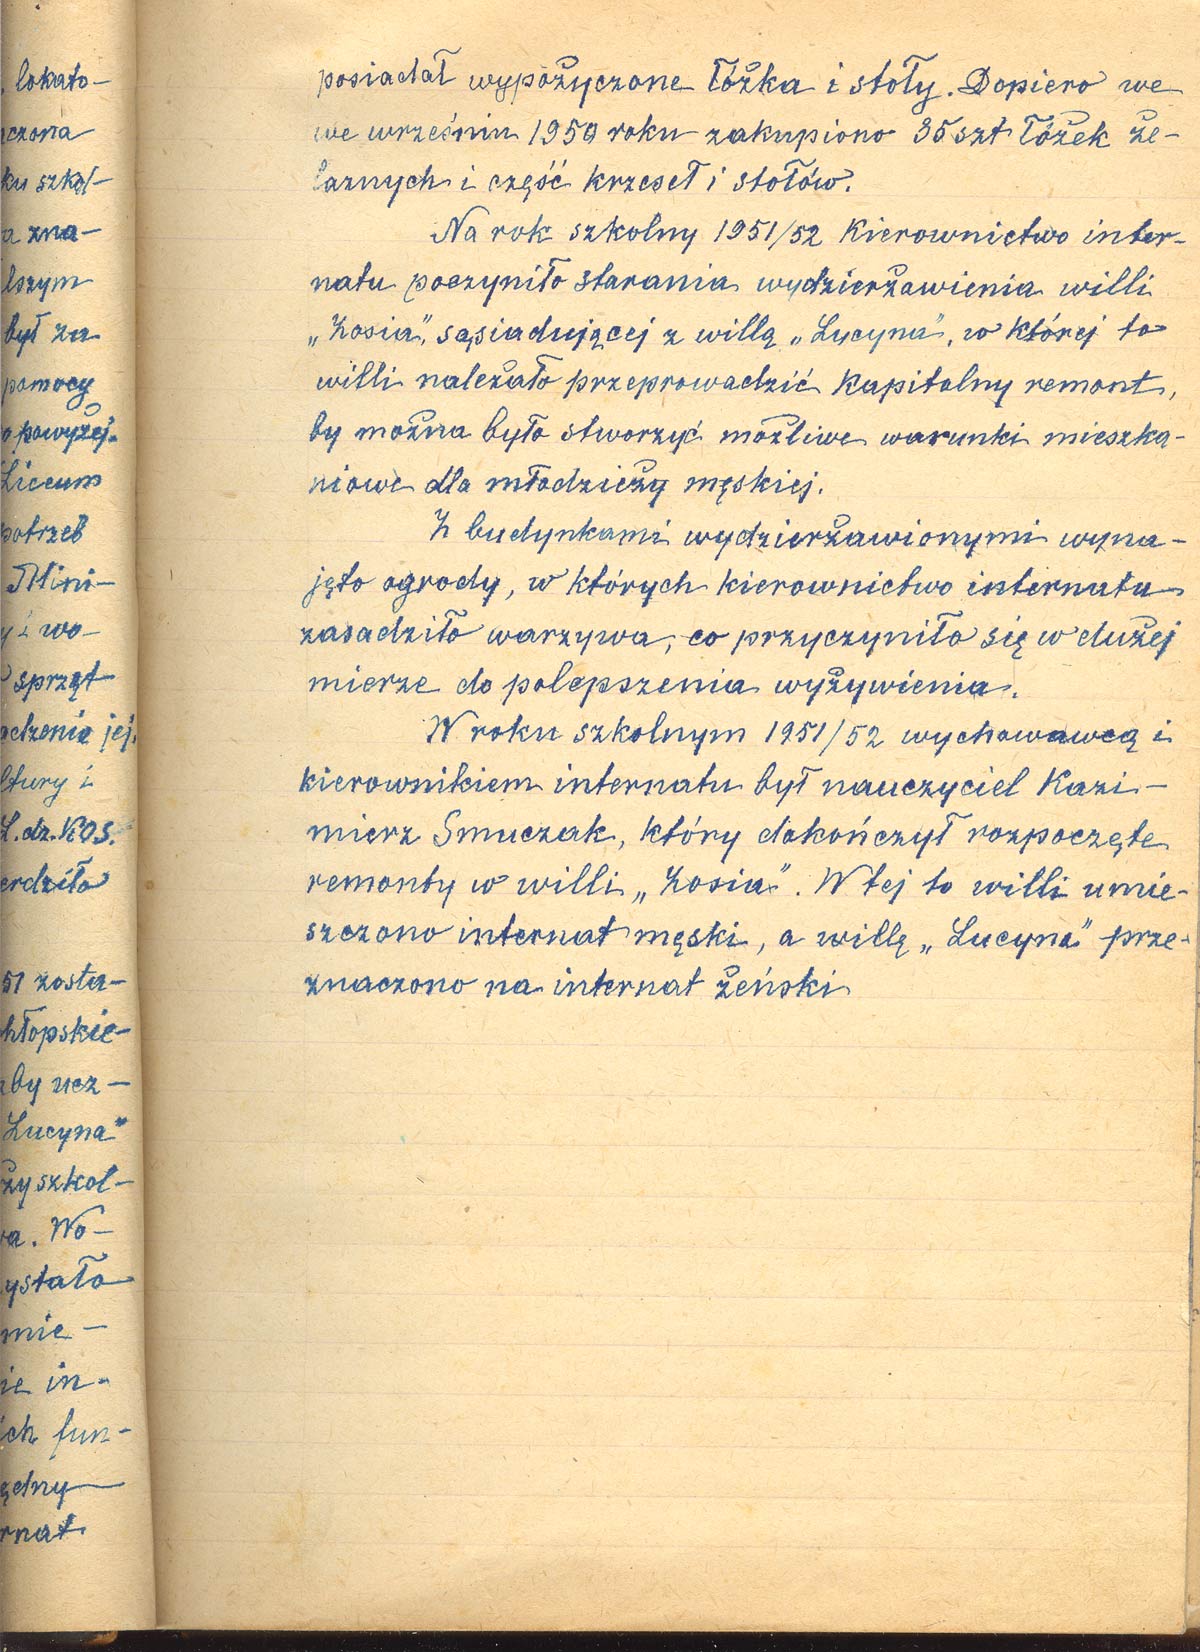 . lokato-
czona
ku szkol-
a zna-
lszym
był za
pomocy
o powyżej.
Liceum
potrzeb
Mini-
y i wo-
sprzęt
odzenie jej.
ltury i
L. dz. KOS.
erdziło
51 zosta-
hłopskie-
by ucz-
Lucyna"
ży szkol-
a. Wo-
ystało
mie-
ie in-
ich fun-
ędny
rnat
posiadał wypożyczone łóżka i stoły. Dopiero we
we wrześniu 1950 roku zakupiono 35 szt łóżek że-
laznych i część krzeseł i stołów.
Na rok szkolny 1951/52 Kierownictwo inter-
natu poczyniło starania wydzierżawienia willi
„Zosia", sąsiadującej z willą „Lucyna", w której to
willi należało przeprowadzić kapitalny remont,
by można było stworzyć możliwe warunki mieszka-
niowe dla młodzieży męskiej.
Z budynkami wydzierżawionymi wyna-
jęto ogrody, w których kierownictwo internatu
zasadziło warzywa, co przyczyniło się w dużej
mierze do polepszenia wyżywienia.
W roku szkolnym 1951/52 wychowawcą i
kierownikiem internatu był nauczyciel Kazi-
mierz Smuczak, który dokończył rozpoczęte
remonty w willi „Zosia". W tej to willi umie-
szczono internat męski, a willę „Lucyna" prze-
znaczono na internat żeński